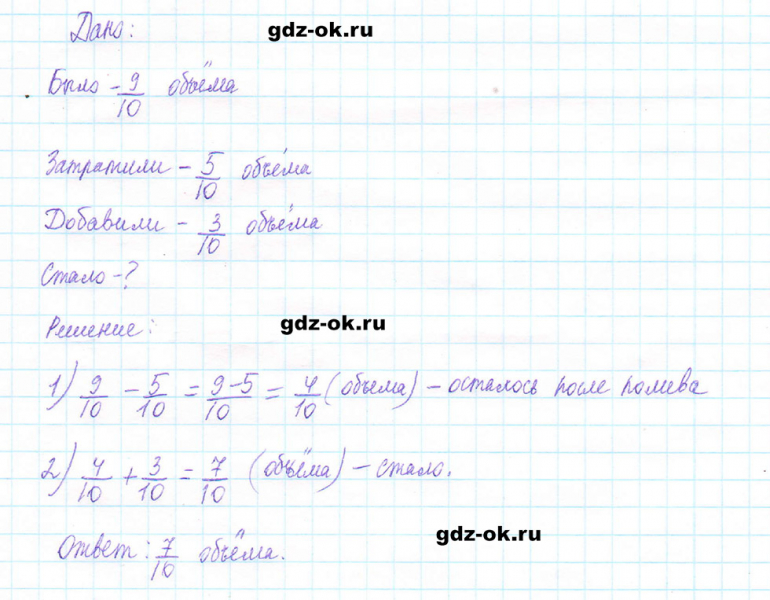 Дано: gdz-ok.ru
Было - 9/10 объёма
Затратили - 5/10 объёма
Добавили - 3/10 объёма
Стало - ?
Решение: gdz-ok.ru
1) 9/10 - 5/10 = 9-5/10 = 4/10 (объема) - осталось после полива
2) 4/10 + 3/10 = 7/10 (объёма) - стало.
Ответ: 7/10 объёма. gdz-ok.ru